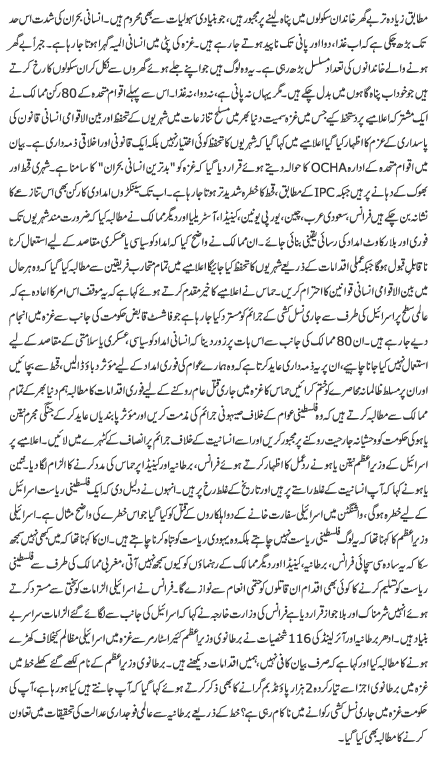 مطابق زیادہ تر بے گھر خاندان سکولوں میں پناہ لینے پر مجبور ہیں، جو بنیادی سہولیات سے بھی محروم ہیں۔ انسانی بحران کی شدت اس حد
تک بڑھ چکی ہے کہ اب غذا، دوا اور پانی تک ناپید ہوتے جا رہے ہیں۔ غزہ کی پٹی میں انسانی المیہ گہرا ہوتا جا رہا ہے۔ جبراً بے گھر
ہونے والے خاندانوں کی تعداد مسلسل بڑھ رہی ہے۔ یہ وہ لوگ ہیں جو اپنے جلے ہوئے گھروں سے نکل کر ان سکولوں کا رخ کرتے
ہیں جو خود اب پناہ گاہوں میں بدل چکے ہیں۔ مگر یہاں نہ پانی ہے، نہ دوا، نہ غذا۔ اس سے پہلے اقوام متحدہ کے 80 رکن ممالک نے
ایک مشترکہ اعلامیے پر دستخط کیے جس میں غزہ سمیت دنیا بھر میں مسلح تنازعات میں شہریوں کے تحفظ اور بین الاقوامی انسانی قانون کی
پاسداری کے عزم کا اظہار کیا گیا اعلامیے میں کہا گیا کہ شہریوں کا تحفظ کوئی اختیار نہیں بلکہ ایک قانونی اور اخلاقی ذمہ داری ہے۔ بیان
میں اقوام متحدہ کے ادارہ OCHA کا حوالہ دیتے ہوئے قرار دیا گیا کہ غزہ کو "بدترین انسانی بحران" کا سامنا ہے۔ شہری قحط اور
بھوک کے دہانے پر ہیں جبکہ IPC کے مطابق، قحط کا خطرہ شدید تر ہوتا جا رہا ہے۔ اب تک سینکڑوں امدادی کارکن بھی اس تنازعے کا
نشانہ بن چکے ہیں فرانس، سعودی عرب، چین، یورپی یونین، کینیڈا، آسٹریلیا اور دیگر ممالک نے مطالبہ کیا کہ ضرورت مند شہریوں تک
فوری اور بلا رکاوٹ امداد کی رسائی یقینی بنائی جائے۔ ان ممالک نے واضح کیا کہ امداد کو سیاسی یا عسکری مقاصد کے لیے استعمال کرنا
ناقابل قبول ہوگا جبکہ عملی اقدامات کے ذریعے شہریوں کا تحفظ کیا جائیگا اعلامیے میں تمام متحارب فریقین سے مطالبہ کیا گیا کہ وہ ہر حال
میں بین الاقوامی انسانی قوانین کا احترام کریں۔ حماس نے اعلامیے کا خیر مقدم کرتے ہوئے کہا ہے کہ یہ موقف اس امر کا اعادہ ہے کہ
عالمی سطح پر اسرائیل کی طرف سے جاری نسل کشی کے جرائم کو مسترد کیا جا رہا ہے جو فاشسٹ قابض حکومت کی جانب سے غزہ میں انجام
دیے جا رہے ہیں۔ ان 80 ممالک کی جانب سے اس بات پر زور دینا کہ امداد کو سیاسی، عسکری یا سلامتی کے مقاصد کے لیے
استعمال نہیں کیا جانا چاہیے، ان پر یہ ذمہ داری عاید کرتا ہے کہ وہ ہمارے عوام کی فوری امداد کے لیے مؤثر دباؤ ڈالیں، قحط سے بچائیں
اور ان پر مسلط ظالمانہ محاصرے کو ختم کرائیں حماس کا غزہ میں جاری قتل عام روکنے کے لیے فوری اقدامات کا مطالبہ ہم دنیا بھر کے تمام
ممالک سے مطالبہ کرتے ہیں کہ وہ فلسطینی عوام کے خلاف صیہونی جرائم کی مذمت کریں اور مؤثر پابندیاں عاید کر کے جنگی مجرم نیتن
یاہو کی حکومت کو وحشیانہ جارحیت روکنے پر مجبور کریں اور اسے انسانیت کے خلاف جرائم پر انصاف کے کٹہرے میں لائیں۔ اعلامیے پر
اسرائیل کے وزیراعظم نیتن یاہو نے ردعمل کا اظہار کرتے ہوئے فرانس، برطانیہ اور کینیڈا پر حماس کی مدد کرنے کا الزام لگا دیا۔ نیتن
یاہو نے کہا کہ آپ انسانیت کے غلط راستے پر ہیں اور تاریخ کے غلط رخ پر ہیں۔ انہوں نے دلیل دی کہ ایک فلسطینی ریاست اسرائیل
کے لیے خطرہ ہو گی، واشنگٹن میں اسرائیلی سفارت خانے کے دو اہلکاروں کے قتل کو کیا گیا جو اس خطرے کی واضح مثال ہے۔ اسرائیلی
وزیراعظم کا کہنا تھا کہ یہ لوگ فلسطینی ریاست نہیں چاہتے بلکہ وہ یہودی ریاست کو تباہ کرنا چاہتے ہیں۔ ان کا کہنا تھا کہ میں کبھی نہیں سمجھ
سکا کہ یہ سادہ سی سچائی فرانس، برطانیہ، کینیڈا اور دیگر ممالک کے رہنماؤں کو کیوں سمجھ نہیں آتی، مغربی ممالک کی طرف سے فلسطینی
ریاست کو تسلیم کرنے کا کوئی بھی اقدام ان قاتلوں کو حتمی انعام سے نوازے گا۔ فرانس نے اسرائیلی الزامات کو سختی سے مسترد کرتے
ہوئے انہیں شرمناک اور بلا جواز قرار دیا ہے فرانس کی وزارت خارجہ نے کہا کہ اسرائیل کی جانب سے لگائے گئے الزامات سراسر بے
بنیاد ہیں۔ ادھر برطانیہ اور آئرلینڈ کی 116 شخصیات نے برطانوی وزیراعظم کیئر اسٹارمر سے غزہ میں اسرائیلی مظالم کیخلاف کھڑے
ہونے کا مطالبہ کیا اور کہا ہے کہ صرف بیان کافی نہیں، ہمیں اقدامات دیکھنے ہیں۔ برطانوی وزیراعظم کے نام لکھے گئے کھلے خط میں
غزہ میں برطانوی اجزا سے تیار کردہ 2 ہزار پاؤنڈ بم گرانے کا بھی ذکر کرتے ہوئے کہا گیا کہ آپ جانتے ہیں کیا ہو رہا ہے، آپ کی
حکومت غزہ میں جاری نسل کشی رکوانے میں ناکام رہی ہے؟ خط کے ذریعے برطانیہ سے عالمی فوجداری عدالت کی تحقیقات میں تعاون
کرنے کا مطالبہ بھی کیا گیا۔